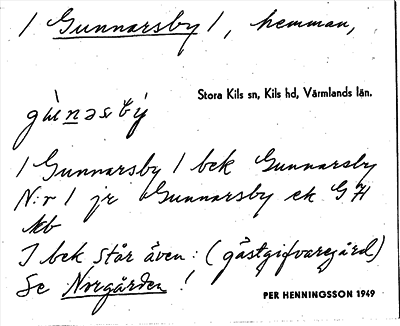 / Gunnarsby /, hemman,
Stora Kils sn, Kils hd, Värmlands län.
gùnəsbý
/ Gunnarsby / bek Gunnarsby
N:r 1 jr Gunnarsby ek G H
kb
I bek står även: (gästgifvaregård)
Se Norgården !
PER HENNINGSSON 1949